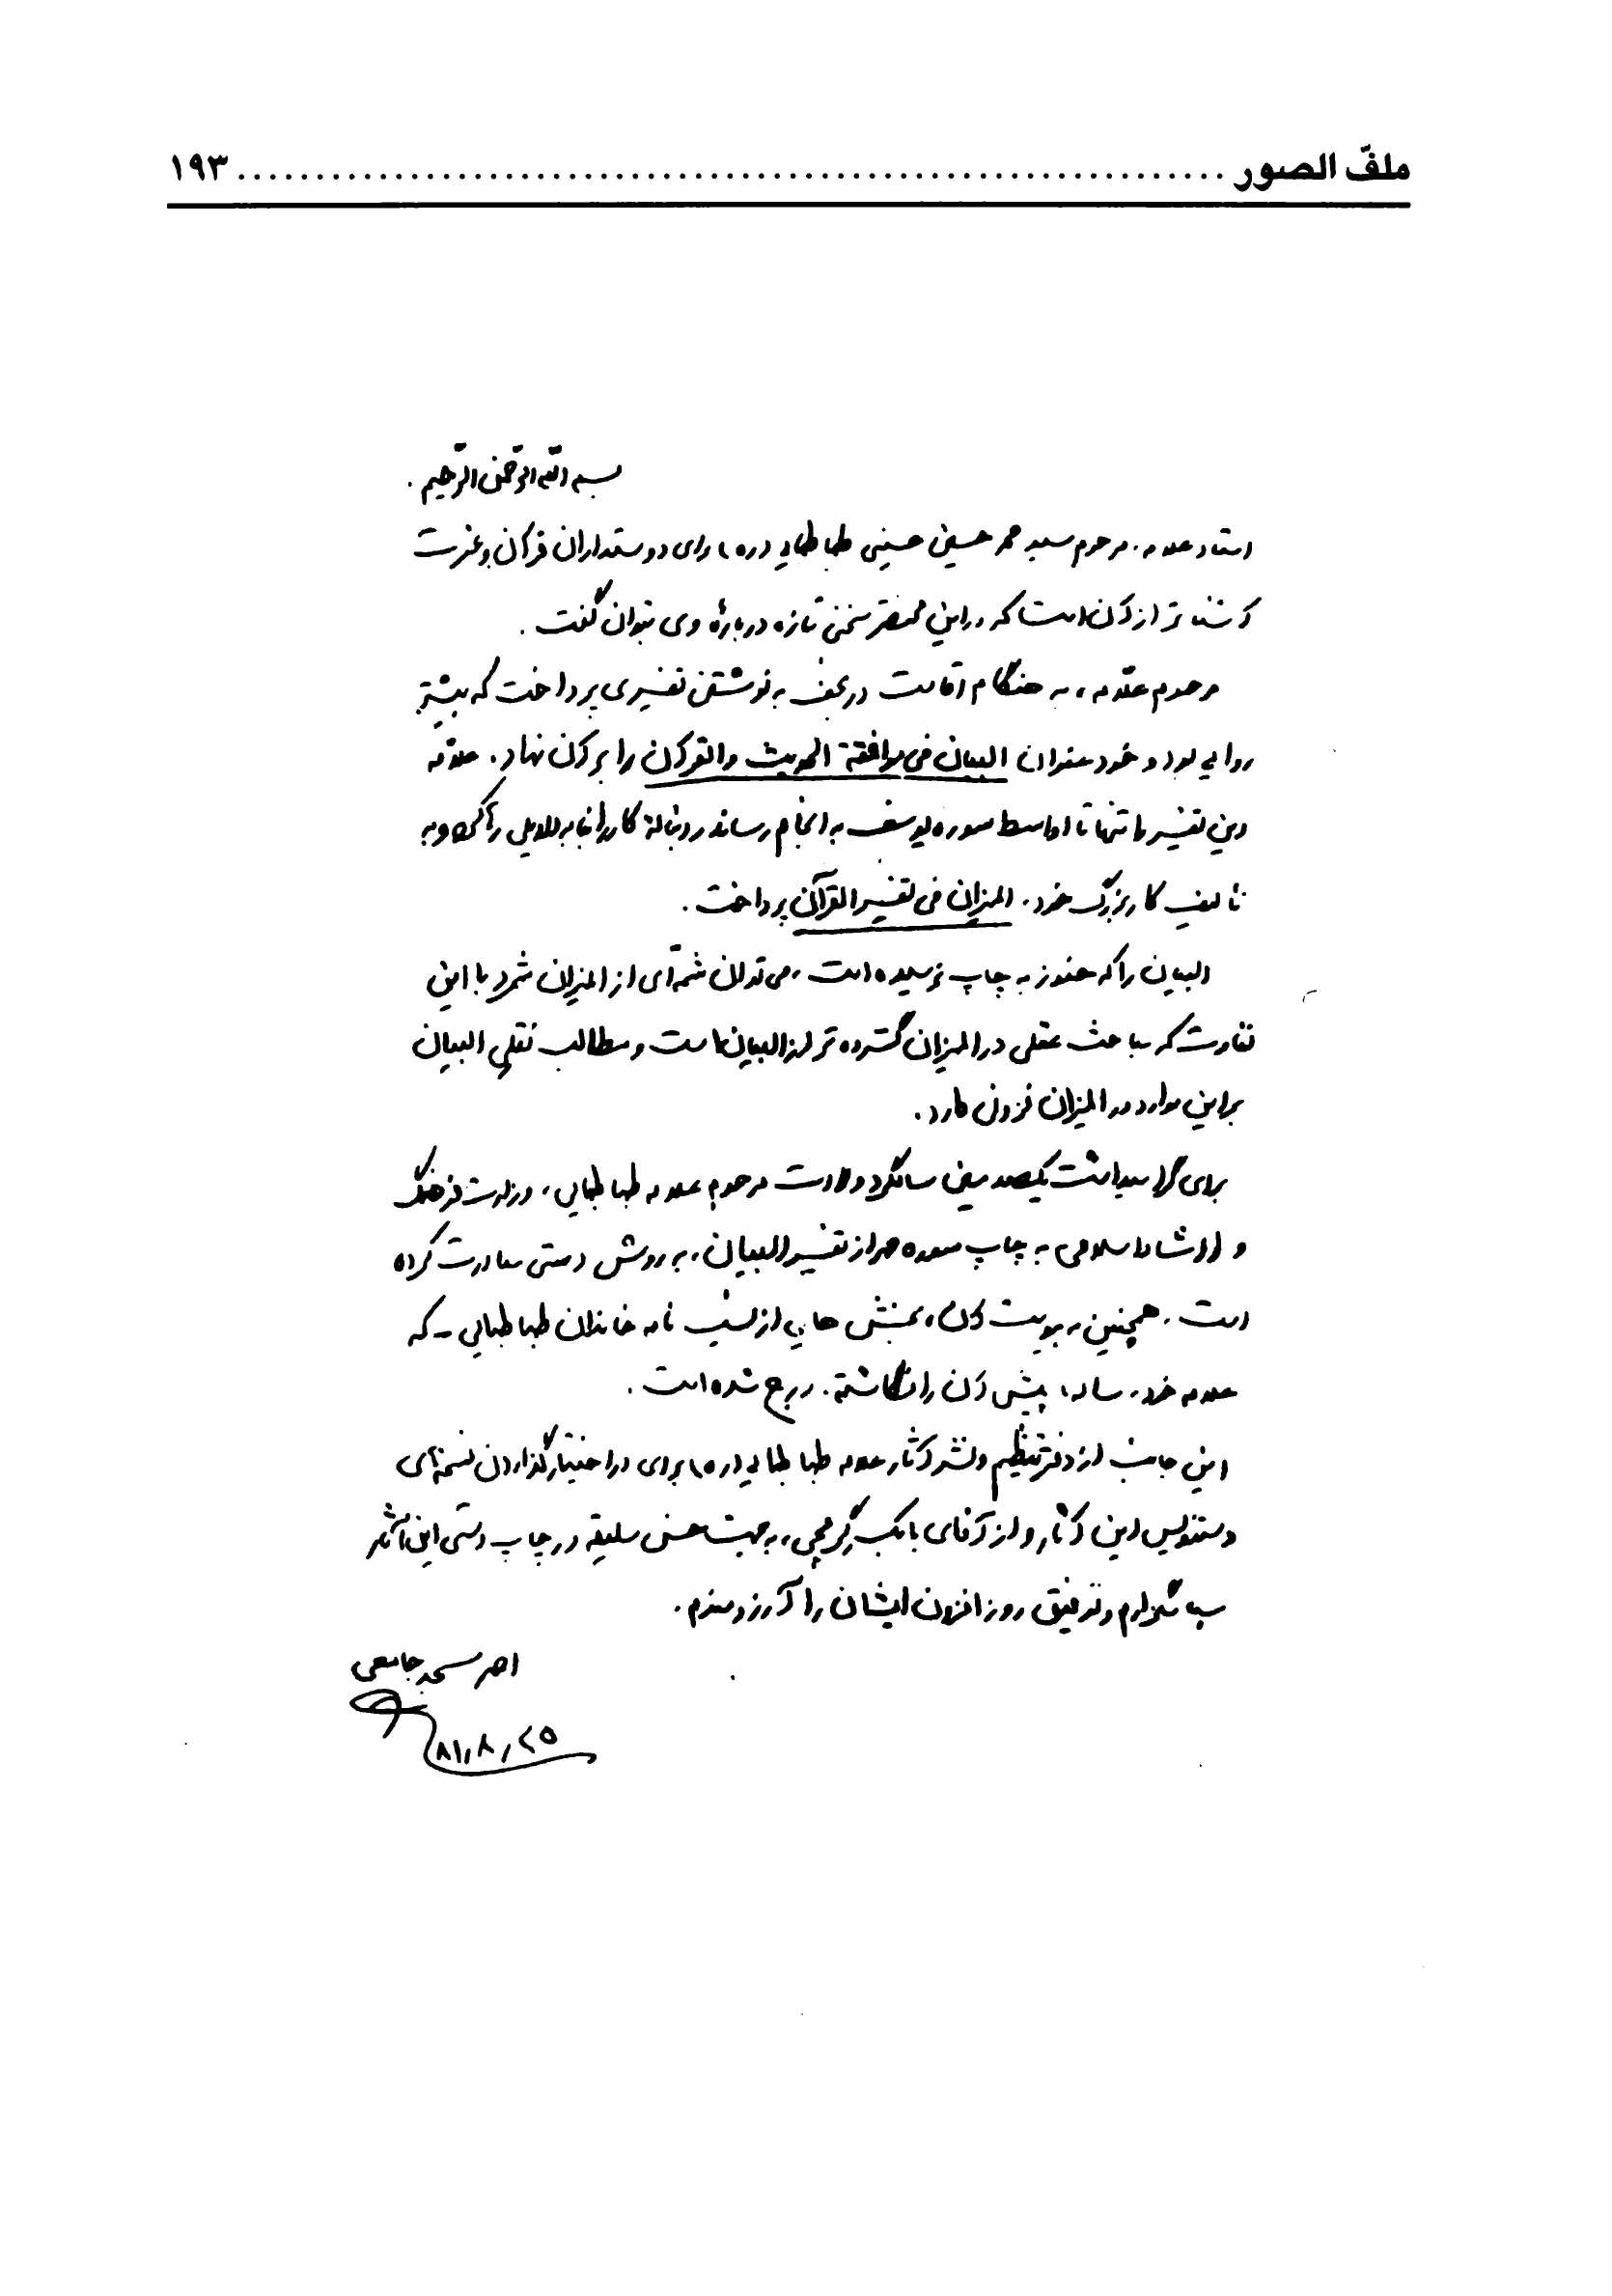 ملفّ الصور ........................................ ١٩٣
بسم الله الرّحمن الرّحیم.
استاد علامه، مرحوم سید محمد حسین حسینی طباطبایی (ره) برای دوستداران قرآن و عترت
آشناتر از آن است که در این مختصر سخنی تازه دربارهٔ وی بتوان گفت.
مرحوم علّامه، به هنگام اقامت در نجف به نوشتن تفسیری پرداخت که بیشتر
روایی بود و خود عنوان البیان فی موافقة الحدیث والقرآن را بر آن نهاد. علّامه
این تفسیر را تنها تا اواسط سوره یوسف به انجام رساند و دنبالهٔ کار را بنا به دلایلی رها کرد و به
تألیف کار بزرگ خود، المیزان فی تفسیر القرآن پرداخت.
البیان را که هنوز به چاپ نرسیده است، می‌توان شمّه‌ای از المیزان شمرد با این
تفاوت که مباحث عقلی در المیزان گسترده‌تر از البیان است و مطالب نقلی البیان
بر این موارد در المیزان فزونی دارد.
برای گرامیداشت یکصدمین سالگرد ولادت مرحوم علامه طباطبایی، وزارت فرهنگ
و ارشاد اسلامی به چاپ سوره حمد از تفسیر البیان، به روش دستی مبادرت کرده
است. همچنین به پیوست آن، بخش‌هایی از نسب نامه خاندان طباطبایی - که
علامه خود، سالها پیش آن را نگاشته، درج شده است.
این جانب از دفتر تنظیم و نشر آثار علامه طباطبایی (ره) برای در اختیار گذاردن نسخه‌ای
دستنویس این آثار و از آقای بابک گرمچی، به جهت حسن سلیقه در چاپ دستی این آثار
سپاسگزارم و توفیق روزافزون ایشان را آرزومندم.
احمد مسجدجامعی
٨١،٨،٢٥